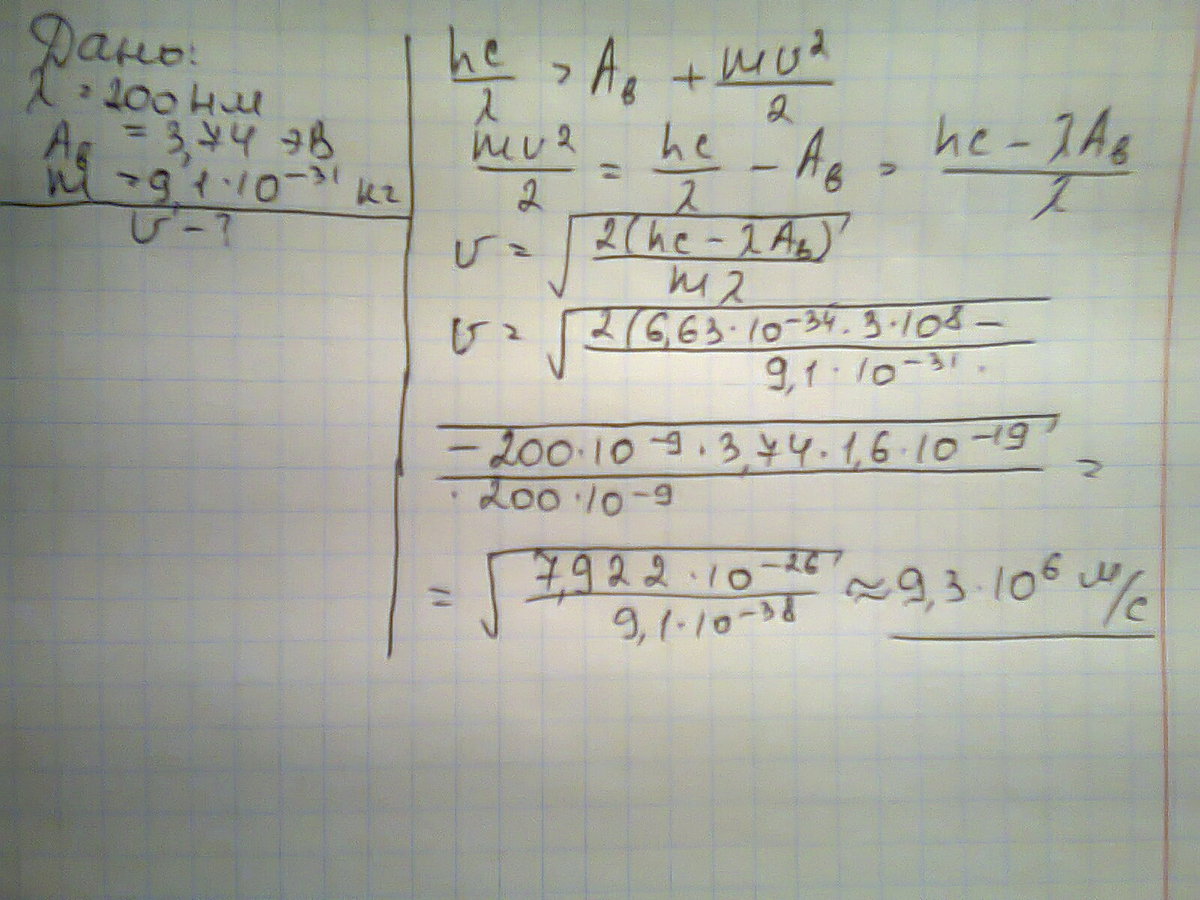 Дано:
λ = 200 нм
Aв = 3,74 эВ
m = 9,1·10⁻³¹ кг
υ - ?
hc/λ = Aв + mυ²/2
mυ²/2 = hc/λ - Aв = (hc - λAв)/λ
υ = √(2(hc - λAв)/(mλ))
υ = √(2(6,63·10⁻³⁴·3·10⁸ - / 9,1·10⁻³¹·
- 200·10⁻⁹·3,74·1,6·10⁻¹⁹) / ·200·10⁻⁹ =
= √(7,922·10⁻²⁶ / 9,1·10⁻³⁸) ≈ 9,3·10⁶ м/с